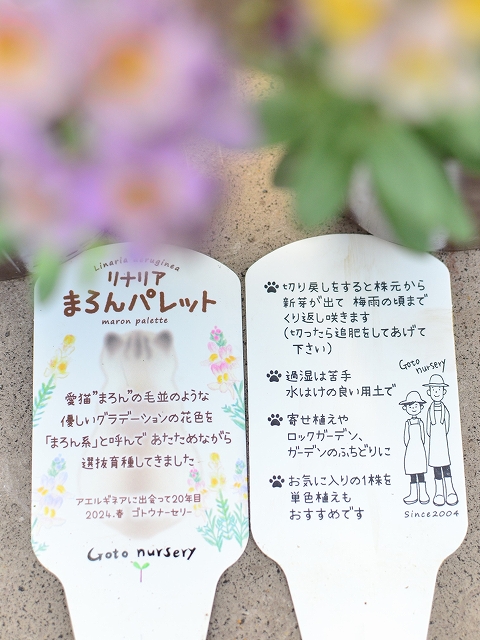 Linaria aeruginea
リナリア
まろんパレット
maron palette
愛猫"まろん"の毛並のような
優しいグラデーションの花色を
「まろん系」と呼んで あたためながら
選抜育種してきました
アエルギネアに出会って20年目
2024.春 ゴトウナーセリー
Goto nursery
切り戻しをすると株元から
新芽が出て 梅雨の頃まで
くり返し咲きます
(切ったら追肥をしてあげて
下さい)
過湿は苦手
水はけの良い用土で
寄せ植えや
ロックガーデン、
ガーデンのふちどりに
お気に入りの1株を
単色植えも
おすすめです
Goto nursery
Since2004